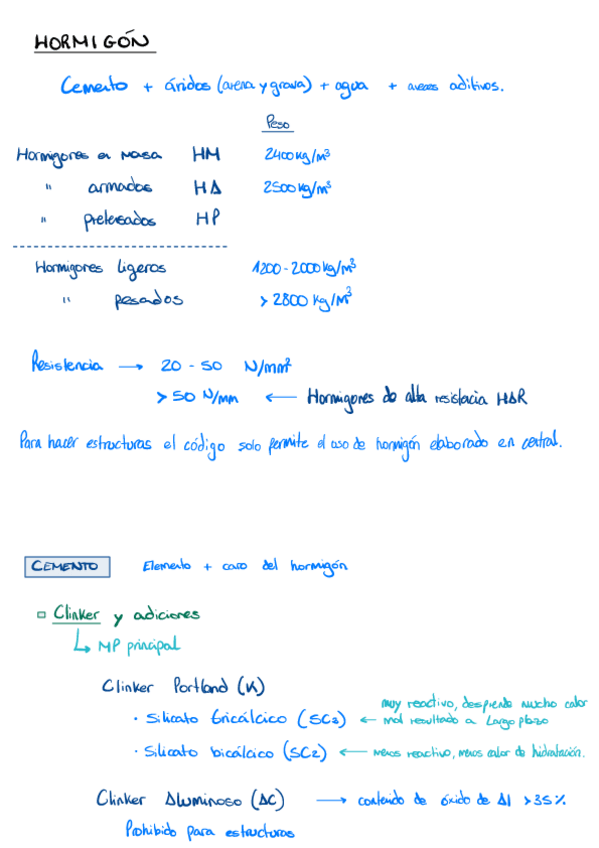 HORMIGÓN
Cemento + áridos (arena y grava) + agua + aveces aditivos.
Peso
Hormigones en masa HM 2400 kg/m³
" armados HA 2500 kg/m³
" pretensados HP
Hormigones ligeros 1200 - 2000 kg/m³
" pesados > 2800 kg/m³
Resistencia → 20 - 50 N/mm²
> 50 N/mm ← Hormigones de alta resistacia HAR
Para hacer estructuras el código solo permite el uso de hormigón elaborado en central.
CEMENTO Elemento + caro del hormigón
Clinker y adiciones
↳ MP principal
Clinker Portland (K)
· Silicato tricálcico (SC3) ← muy reactivo, desprende mucho calor
mal resultado a largo plazo
· Silicato bicálcico (SC2) ← menos reactivo, menos calor de hidratación.
Clinker Aluminoso (AC) → contenido de óxido de Al > 35%
Prohibido para estructuras